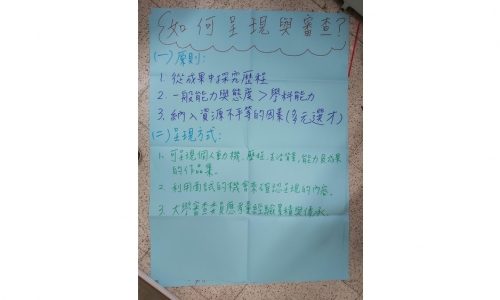 如何呈現與審查?
(一)原則:
1. 從成果中探究歷程
2. 一般能力與態度>學科能力
3. 納入資源不平等的因素(多元選才)
(二)呈現方式:
1. 可呈現個人動機、歷程、生活背景、能力與成果
的作品集。
2. 利用面試的機會來確認呈現的內容。
3. 大學審查委員應考量經驗累積與傳承。